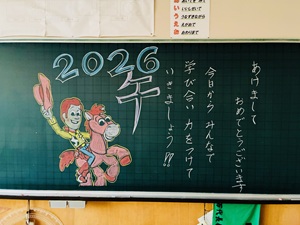 2026
午
あけまして
おめでとうございます
今日から みんなで
学び合い 力をつけて
いきましょう!!